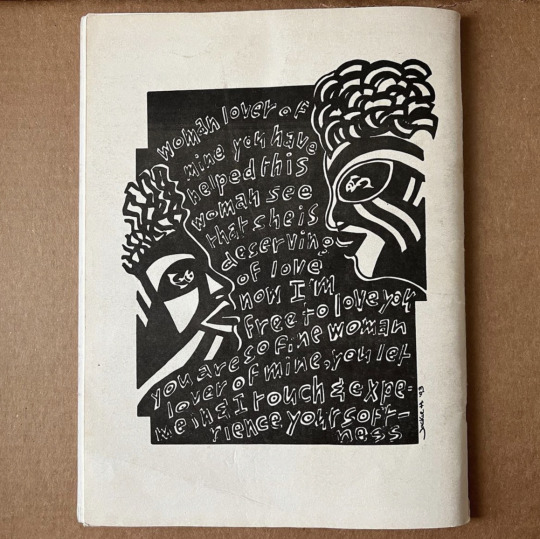 woman lover of
mine you have
helped this
woman see
that she is
deserving
of love
now I'm
free to love you
you are so fine woman
lover of mine, you let
me in & I touch & expe-
rience your soft-
ness